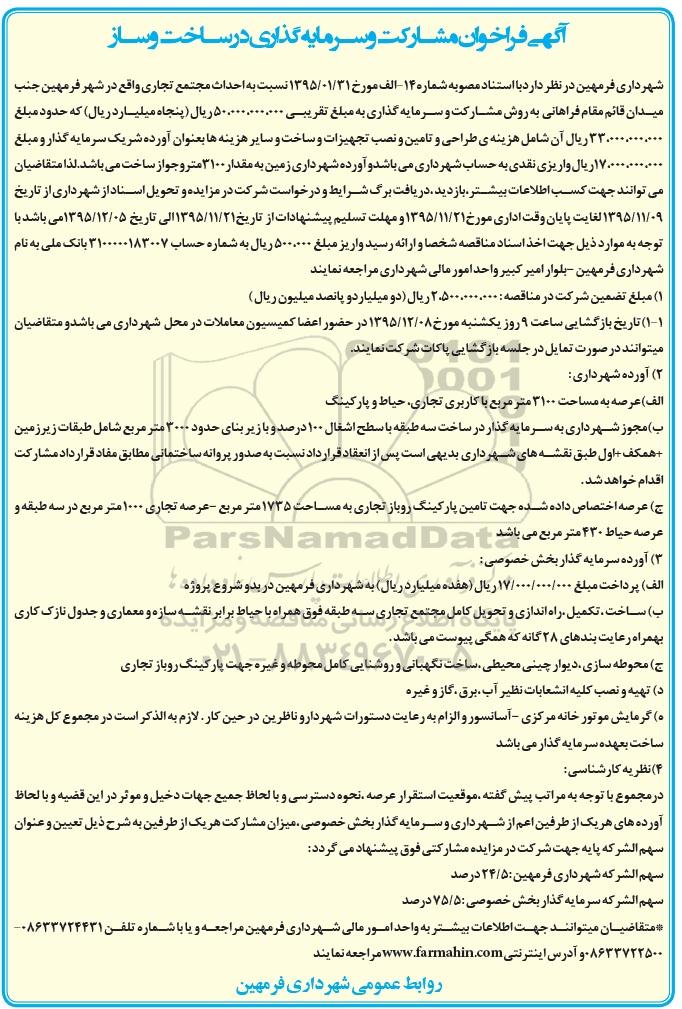 آگهی فراخوان مشارکت و سرمایه گذاری در ساخت و ساز
شهرداری فرمهین در نظر دارد با استناد مصوبه شماره ۱۴-الف مورخ ۱۳۹۵/۰۱/۳۱ نسبت به احداث مجتمع تجاری واقع در شهر فرمهین جنب
میدان قائم مقام فراهانی به روش مشارکت و سرمایه گذاری به مبلغ تقریبی ۵۰.۰۰۰.۰۰۰.۰۰۰ ریال (پنجاه میلیارد ریال) که حدود مبلغ
۳۳.۰۰۰.۰۰۰.۰۰۰ ریال آن شامل هزینه ی طراحی و تامین و نصب تجهیزات و ساخت و سایر هزینه ها بعنوان آورده شریک سرمایه گذار و مبلغ
۱۷.۰۰۰.۰۰۰.۰۰۰ ریال واریزی نقدی به حساب شهرداری می باشد و آورده شهرداری زمین به مقدار ۳۱۰۰ متر و جواز ساخت می باشد. لذا متقاضیان
می توانند جهت کسب اطلاعات بیشتر، بازدید ،دریافت برگ شرایط و درخواست شرکت در مزایده و تحویل اسناد از شهرداری از تاریخ
۱۳۹۵/۱۱/۰۹ لغایت پایان وقت اداری مورخ ۱۳۹۵/۱۱/۲۱ و مهلت تسلیم پیشنهادات از تاریخ ۱۳۹۵/۱۱/۲۱ الی تاریخ ۱۳۹۵/۱۲/۰۵ می باشد با
توجه به موارد ذیل جهت اخذ اسناد مناقصه شخصا و ارائه رسید واریز مبلغ ۵۰۰.۰۰۰ ریال به شماره حساب ۳۱۰۰۰۰۰۱۸۳۰۰۷ بانک ملی به نام
شهرداری فرمهین -بلوار امیر کبیر واحد امور مالی شهرداری مراجعه نمایند
۱) مبلغ تضمین شرکت در مناقصه : ۲.۵۰۰.۰۰۰.۰۰۰ ریال (دو میلیارد و پانصد میلیون ریال )
۱-۱) تاریخ بازگشایی ساعت ۹ روز یکشنبه مورخ ۱۳۹۵/۱۲/۰۸ در حضور اعضا کمیسیون معاملات در محل شهرداری می باشد و متقاضیان
میتوانند در صورت تمایل در جلسه بازگشایی پاکات شرکت نمایند.
۲) آورده شهرداری :
الف) عرصه به مساحت ۳۱۰۰ متر مربع با کاربری تجاری، حیاط و پارکینگ
ب) مجوز شهرداری به سرمایه گذار در ساخت سه طبقه با سطح اشغال ۱۰۰ درصد و با زیر بنای حدود ۳۰۰۰ متر مربع شامل طبقات زیرزمین
+همکف +اول طبق نقشه های شهرداری بدیهی است پس از انعقاد قرارداد نسبت به صدور پروانه ساختمانی مطابق مفاد قرارداد مشارکت
اقدام خواهد شد.
ج) عرصه اختصاص داده شده جهت تامین پارکینگ روباز تجاری به مساحت ۱۷۳۵ متر مربع -عرصه تجاری ۱۰۰۰ متر مربع در سه طبقه و
عرصه حیاط ۴۳۰ متر مربع می باشد
ParsNamadData
۳) آورده سرمایه گذار بخش خصوصی :
الف) پرداخت مبلغ ۱۷/۰۰۰/۰۰۰/۰۰۰ ریال (هفده میلیارد ریال) به شهرداری فرمهین در بدو شروع پروژه
ب) ساخت ، تکمیل ، راه اندازی و تحویل کامل مجتمع تجاری سه طبقه فوق همراه با حیاط برابر نقشه سازه و معماری و جدول نازک کاری
بهمراه رعایت بندهای ۲۸ گانه که همگی پیوست می باشد.
پایگاه اطلاع رسانی مناقصه و مزایده
ج) محوطه سازی ،دیوار چینی محیطی ،ساخت نگهبانی و روشنایی کامل محوطه و غیره جهت پارکینگ روباز تجاری
۰۲۱-۸۸۳۴۹۶۷۰-۵
د) تهیه و نصب کلیه انشعابات نظیر آب ،برق ،گاز و غیره
ه) گرمایش موتور خانه مرکزی -آسانسور و الزام به رعایت دستورات شهردار و ناظرین در حین کار . لازم به الذکر است در مجموع کل هزینه
ساخت بعهده سرمایه گذار می باشد
۴) نظریه کارشناسی :
در مجموع با توجه به مراتب پیش گفته ،موقعیت استقرار عرصه ،نحوه دسترسی و با لحاظ جمیع جهات دخیل و موثر در این قضیه و با لحاظ
آورده های هریک از طرفین اعم از شهرداری و سرمایه گذار بخش خصوصی ،میزان مشارکت هریک از طرفین به شرح ذیل تعیین و عنوان
سهم الشرکه پایه جهت شرکت در مزایده مشارکتی فوق پیشنهاد می گردد:
سهم الشرکه شهرداری فرمهین : ۲۴/۵ درصد
سهم الشرکه سرمایه گذار بخش خصوصی : ۷۵/۵ درصد
*متقاضیان میتوانند جهت اطلاعات بیشتر به واحد امور مالی شهرداری فرمهین مراجعه و یا با شماره تلفن ۰۸۶۳۳۷۲۴۴۳۱-
۰۸۶۳۳۷۲۲۵۰۰ و آدرس اینترنتی www.farmahin.com مراجعه نمایند
روابط عمومی شهرداری فرمهین